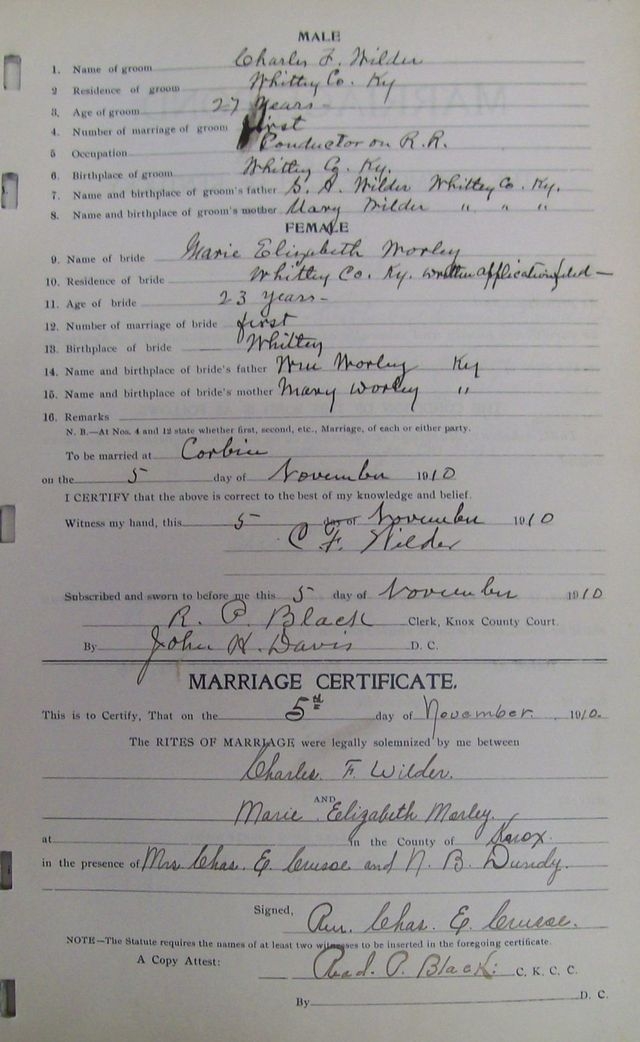 MALE
1. Name of groom Charles F. Wilder
2 Residence of groom Whitley Co. Ky
3. Age of groom 27 years -
4. Number of marriage of groom first
5 Occupation Conductor on R.R.
6. Birthplace of groom Whitley Co. Ky.
7. Name and birthplace of groom's father S. A. Wilder Whitley Co. Ky.
8. Name and birthplace of groom's mother Mary Wilder " " "
FEMALE
9. Name of bride Marie Elizabeth Morley
10. Residence of bride Whitley Co. Ky. written application filed —
11. Age of bride 23 years -
12. Number of marriage of bride first
13. Birthplace of bride Whitley
14. Name and birthplace of bride's father Wm Morley Ky
15. Name and birthplace of bride's mother Mary Worley "
16. Remarks
N. B.—At Nos. 4 and 12 state whether first, second, etc., Marriage, of each or either party.
To be married at Corbin
on the 5 day of November 1910
I CERTIFY that the above is correct to the best of my knowledge and belief.
Witness my hand, this 5 day of November 1910
C F. Wilder
Subscribed and sworn to before me this 5 day of November 1910
R. P. Black Clerk, Knox County Court.
By John H. Davis D. C.
MARRIAGE CERTIFICATE.
This is to Certify, That on the 5th day of November. 1910.
The RITES OF MARRIAGE were legally solemnized by me between
Charles. F. Wilder.
AND
Marie Elizabeth Morley.
at in the County of Knox.
in the presence of Mrs Chas. E. Crusoe and N. B. Dundy.
Signed, Rev. Chas. E. Crusoe.
NOTE—The Statute requires the names of at least two witnesses to be inserted in the foregoing certificate.
A Copy Attest: Read. P. Black: C. K. C. C.
By D. C.